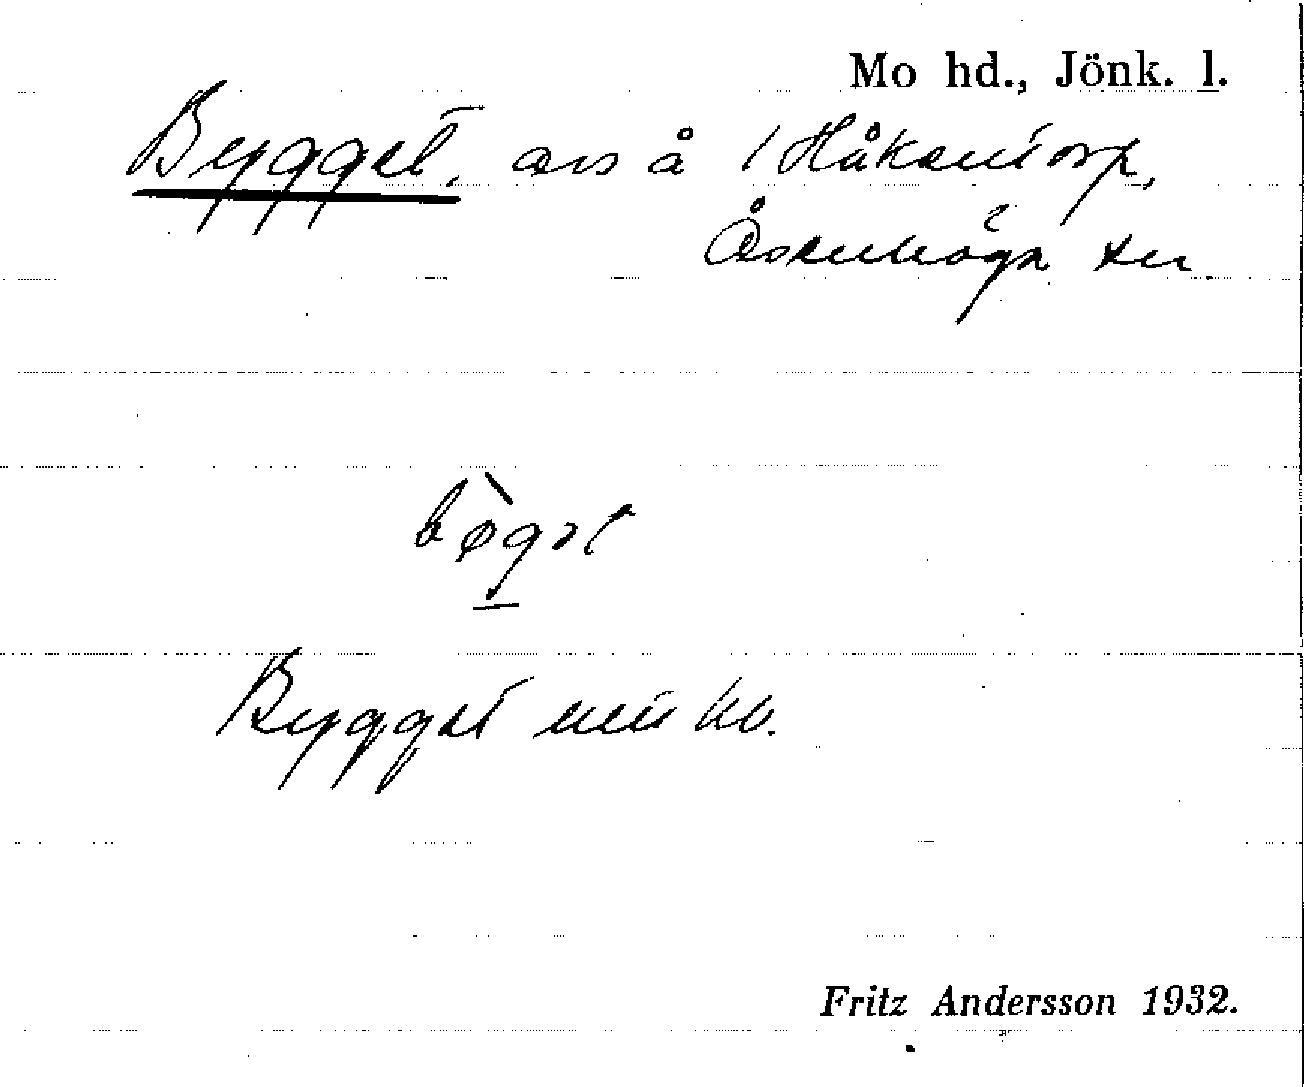 Mo hd., Jönk. l.
Bygget, avs å 1 Håkentorp,
Åsenhöga sn
bø̀gət
Bygget min kb.
Fritz Andersson 1932.